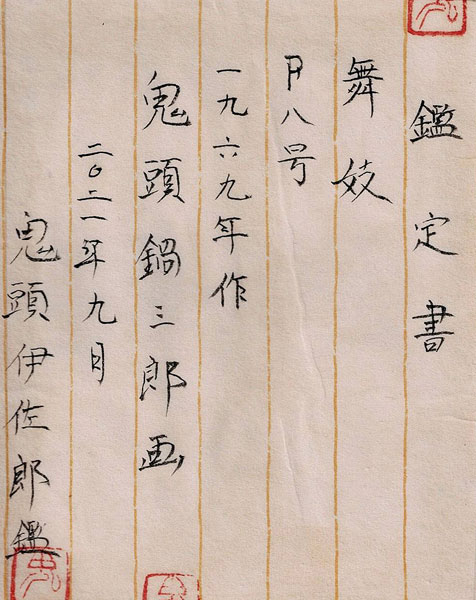 鑑定書
舞妓
P八号
一九六九年作
鬼頭鍋三郎画
二〇二一年九月
鬼頭伊佐郎鑑